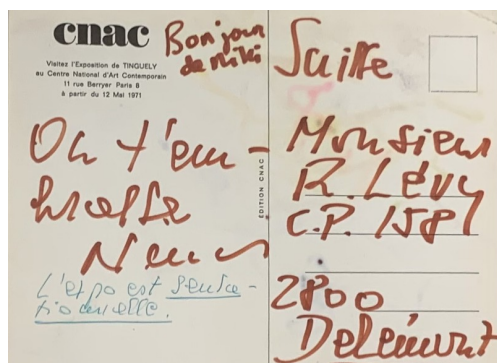 cnac
Visitez l'Exposition de TINGUELY
au Centre National d'Art Contemporain
11 rue Berryer Paris 8
à partir du 12 Mai 1971
Bonjour
de Niki
On t'em-
brasse
L'expo est sensa-
tionnelle.
EDITION CNAC
Suisse
Monsieur
R. Lévy
C.P. 158
2800
Delémont